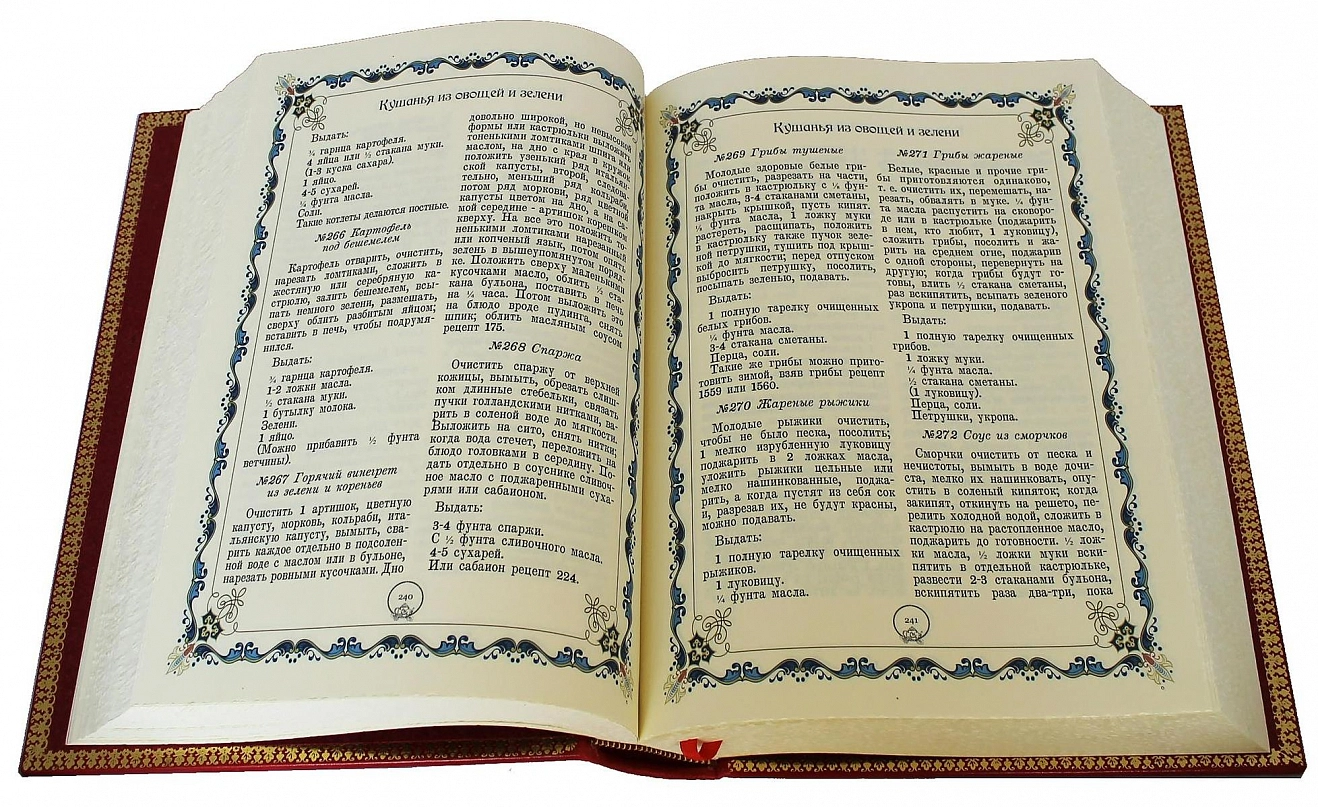 Кушанья из овощей и зелени
Выдать:
¾ гарнца картофеля.
4 яйца или ½ стакана муки.
(1-3 куска сахара).
1 яйцо.
4-5 сухарей.
¼ фунта масла.
Соли.
Такие котлеты делаются постные.
№266 Картофель
под бешемелем
Картофель отварить, очистить,
нарезать ломтиками, сложить в
жестяную или серебряную ка-
стрюлю, залить бешемелем, всы-
пать немного зелени, размешать,
сверху облить разбитым яйцом;
вставить в печь, чтобы подрумя-
нился.
Выдать:
¾ гарнца картофеля.
1-2 ложки масла.
½ стакана муки.
1 бутылку молока.
Зелени.
1 яйцо.
(Можно прибавить ½ фунта
ветчины).
№267 Горячий винегрет
из зелени и кореньев
Очистить 1 артишок, цветную
капусту, морковь, кольраби, ита-
льянскую капусту, вымыть, сва-
рить каждое отдельно в подсолен-
ной воде с маслом или в бульоне,
нарезать ровными кусочками. Дно
довольно широкой, но невысокой
формы или кастрюльки выложить
тоненькими ломтиками шпига или
маслом, на дно с края в кружок
положить узенький ряд итальян-
ской капусты, второй, следова-
тельно, меньший ряд кольраби,
потом ряд моркови, ряд цветной
капусты цветом на дно, а на са-
мой середине - артишок корешком
кверху. На все это положить то-
ненькими ломтиками нарезанный
или копченый язык, потом опять
зелень в вышеупомянутом поряд-
ке. Положить сверху маленькими
кусочками масло, облить ½ ста-
кана бульона, поставить в печь
на ¼ часа. Потом выложить это
на блюдо вроде пудинга, снять
шпик; облить масляным соусом
рецепт 175.
№268 Спаржа
Очистить спаржу от верхней
кожицы, вымыть, обрезать слиш-
ком длинные стебельки, связать
пучки голландскими нитками, ва-
рить в соленой воде до мягкости.
Выложить на сито, снять нитки;
когда вода стечет, переложить на
блюдо головками в середину. По-
дать отдельно в соуснике сливоч-
ное масло с поджаренными суха-
рями или сабаионом.
Выдать:
3-4 фунта спаржи.
С ½ фунта сливочного масла.
4-5 сухарей.
Или сабаион рецепт 224.
240
Кушанья из овощей и зелени
№269 Грибы тушеные
Молодые здоровые белые гри-
бы очистить, разрезать на части,
положить в кастрюльку с ¼ фун-
та масла, 3-4 стаканами сметаны,
накрыть крышкой, пусть кипят.
¼ фунта масла, 1 ложку муки
растереть, расщипать, положить
в кастрюльку также пучок зеле-
ной петрушки, тушить под крыш-
кой до мягкости; перед отпуском
выбросить петрушку, посолить,
посыпать зеленью, подавать.
Выдать:
1 полную тарелку очищенных
белых грибов.
¼ фунта масла.
3-4 стакана сметаны.
Перца, соли.
Такие же грибы можно приго-
товить зимой, взяв грибы рецепт
1559 или 1560.
№270 Жареные рыжики
Молодые рыжики очистить,
чтобы не было песка, посолить;
1 мелко изрубленную луковицу
поджарить в 2 ложках масла,
уложить рыжики цельные или
мелко нашинкованные, поджа-
рить, а когда пустят из себя сок
и, разрезав их, не будут красны,
можно подавать.
Выдать:
1 полную тарелку очищенных
рыжиков.
1 луковицу.
¼ фунта масла.
№271 Грибы жареные
Белые, красные и прочие гри-
бы приготовляются одинаково,
т. е. очистить их, перемешать, на-
резать, обвалять в муке. ¼ фун-
та масла распустить на сковоро-
де или в кастрюльке (поджарить
в нем, кто любит, 1 луковицу),
сложить грибы, посолить и жа-
рить на среднем огне, поджарив
с одной стороны, перевернуть на
другую; когда грибы будут го-
товы, влить ½ стакана сметаны,
раз вскипятить, всыпать зеленого
укропа и петрушки, подавать.
Выдать:
1 полную тарелку очищенных
грибов.
1 ложку муки.
¼ фунта масла.
½ стакана сметаны.
(1 луковицу).
Перца, соли.
Петрушки, укропа.
№272 Соус из сморчков
Сморчки очистить от песка и
нечистоты, вымыть в воде дочи-
ста, мелко их нашинковать, опу-
стить в соленый кипяток; когда
закипят, откинуть на решето, пе-
релить холодной водой, сложить в
кастрюлю на растопленное масло,
поджарить до готовности. ½ лож-
ки масла, ½ ложки муки вски-
пятить в отдельной кастрюльке,
развести 2-3 стаканами бульона,
вскипятить раза два-три, пока
241